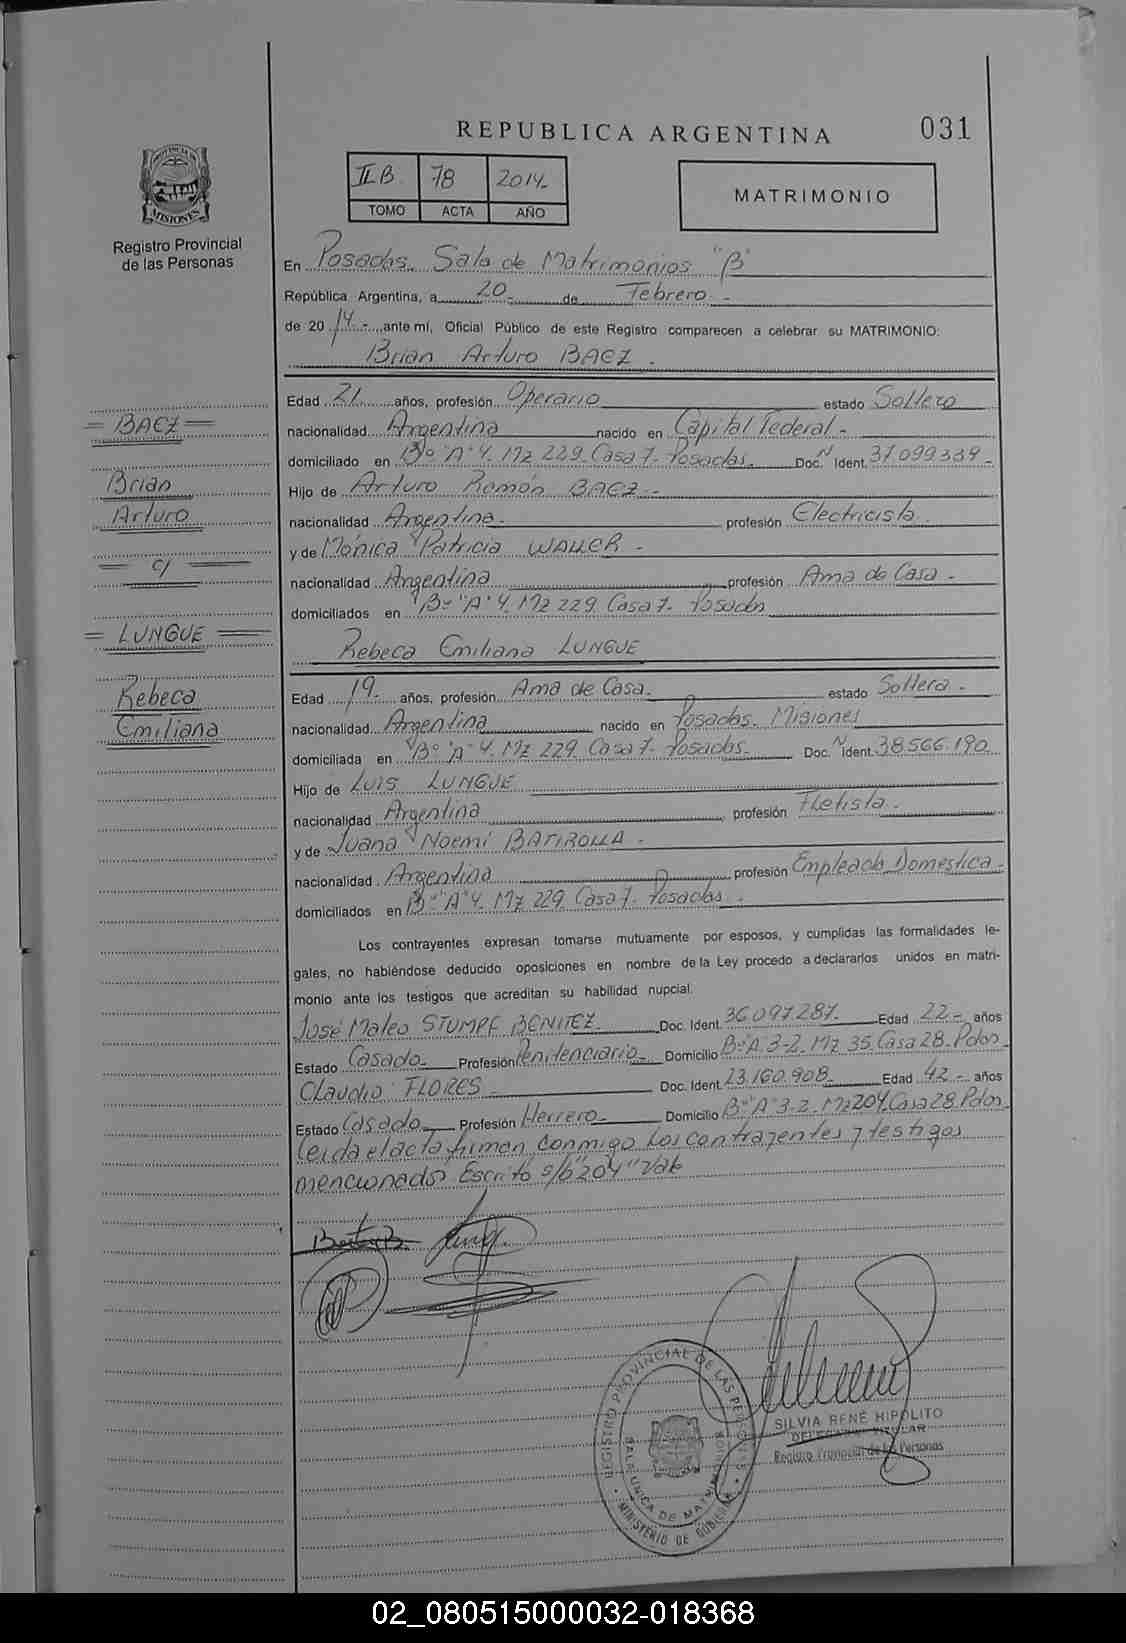 REPUBLICA ARGENTINA
031
II B. 78 2014.-
TOMO ACTA AÑO
MATRIMONIO
PROVINCIA DE MISIONES
Registro Provincial
de las Personas
En Posadas. Sala de Matrimonios "B"
República Argentina, a 20- de Febrero.-
de 2014.- ante mí, Oficial Público de este Registro comparecen a celebrar su MATRIMONIO:
Brian Arturo BAEZ.
Edad 21. años, profesión Operario estado Soltero
nacionalidad Argentina nacido en Capital Federal.-
domiciliado en Bº "A" 4. Mz 229. Casa 7. Posadas. Doc. N Ident. 37.099.339-
Hijo de Arturo Ramón BAEZ.-
nacionalidad Argentina. profesión Electricista.
y de Mónica Patricia WALLER.-
nacionalidad Argentina profesión Ama de Casa.-
domiciliados en Bº "A" 4. Mz 229. Casa 7. Posadas
Rebeca Emiliana LUNGUE
Edad 19.- años, profesión Ama de Casa. estado Soltera.-
nacionalidad Argentina nacido en Posadas. Misiones
domiciliada en Bº "A" 4. Mz 229. Casa 7. Posadas. Doc. N Ident. 38.566.190
Hijo de Luis LUNGUE
nacionalidad Argentina profesión Fletista.-
y de Juana Noemí BATIROLLA.-
nacionalidad Argentina profesión Empleada Domestica.-
domiciliados en Bº "A" 4. Mz 229. Casa 7. Posadas.-
Los contrayentes expresan tomarse mutuamente por esposos, y cumplidas las formalidades le-
gales, no habiéndose deducido oposiciones en nombre de la Ley procedo a declararlos unidos en matri-
monio ante los testigos que acreditan su habilidad nupcial.
José Mateo STUMPF BENITEZ Doc. Ident. 36.097.287. Edad 22- años
Estado Casado- Profesión Penitenciario- Domicilio Bº A. 3-2. Mz 35. Casa 28. Pdas.
Claudio FLORES Doc. Ident. 23.160.908 Edad 42- años
Estado Casado Profesión Herrero- Domicilio Bº "A" 3-2. Mz 204. Casa 28. Pdas.
Leída el acta firman conmigo los contrayentes y testigos
mencionados Escrito s/b "204" Vale
= BAEZ =
Brian
Arturo
= c/ =
= LUNGUE =
Rebeca
Emiliana
REGISTRO PROVINCIAL DE LAS PERSONAS
SALA UNICA DE MATRIMONIOS
MINISTERIO DE GOBIERNO
SILVIA RENÉ HIPOLITO
DELEGADA TITULAR
Registro Provincial de las Personas
02_080515000032-018368